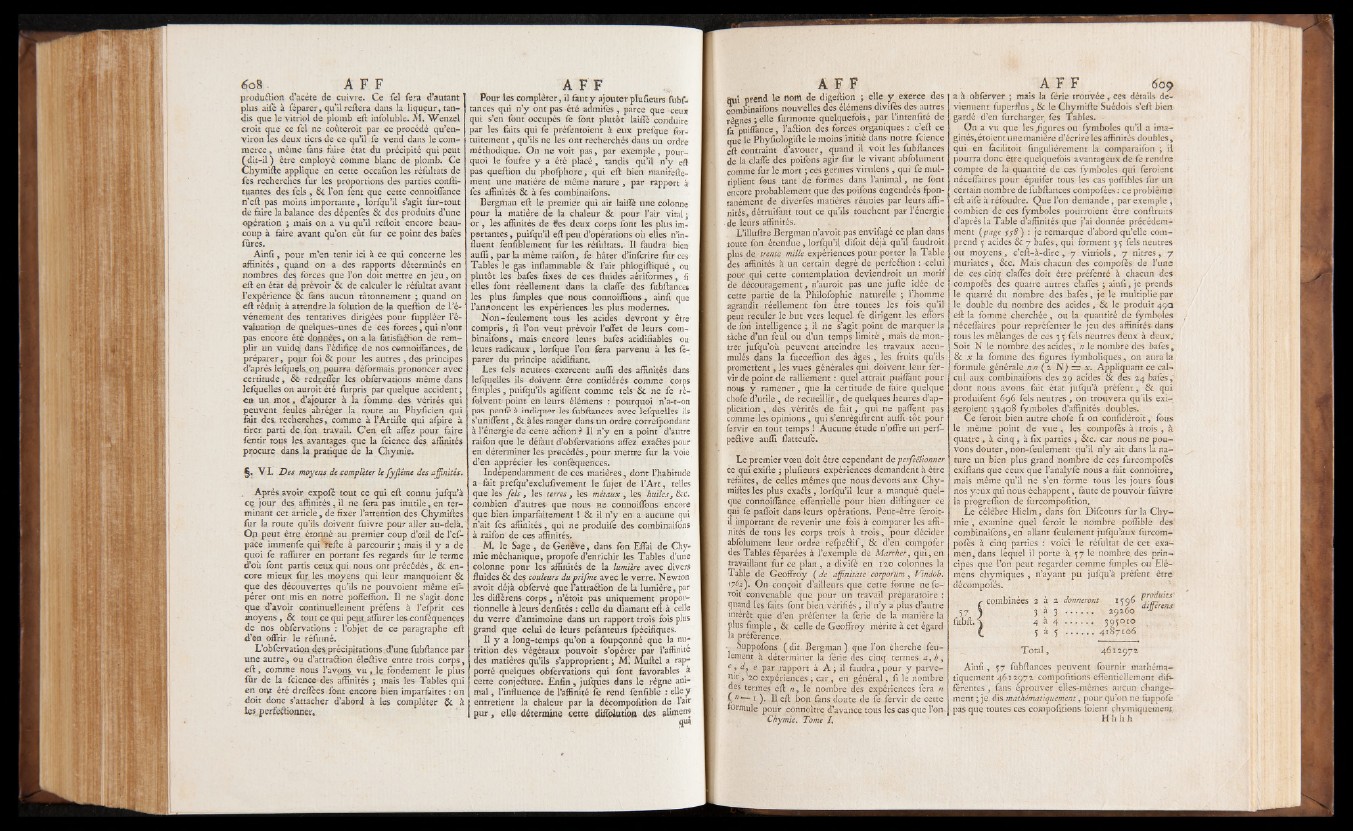 608 A F F
production d'acète de cuivre. Ce sel sera d'autant
plus aisé à séparer, qu'il restera dans la liqueur, tan-
dis que le vitriol de plomb est insoluble. M. Wenzel
croit que ce sel ne coûteroit par ce procédé qu'en-
viron les deux tiers de ce qu'il se vend dans le com-
merce, même sans faire état du précipité qui peut
(dit-il) être employé comme blanc de plomb. Ce
Chymiste applique en cette occasion les résultats de
ses recherches sur les proportions des parties consti-
tuantes des sels, & l'on sent que cette connoissance
n'est pas moins importante, lorsqu'il s'agit sur-tout
de faire la balance des dépenses & des produits d'une
opération ; mais on a vu qu'il restoit encore beau-
coup à faire avant qu'on eût sur ce point des bases
sûres.
Ainsi, pour m'en tenir ici à ce qui concerne les
affinités, quand on a des rapports déterminés en
nombres des forces que l'on doit mettre en jeu, on
est en état de prévoir & de calculer le résultat avant
l'expérience & sans aucun tâtonnement ; quand on
est réduit à attendre la solution de la question de l'é-
vénement des tentatives dirigées pour suppléer l'é-
valuation de quelques-unes de ces forces, qui n'ont
pas encore été données, on a la satisfaction de rem-
plir un vuide dans l'édifice de nos connoissances, de
préparer, pour soi & pour les autres, des principes
d'après lesquels on pourra désormais prononcer avec
certitude, & redresser les observations même dans
lesquelles on auroit été surpris par quelque accident ;
en un mot, d'ajouter à la somme des vérités qui
peuvent seules abréger la route au Physicien qui
fait des recherches, comme à l'Artiste qui aspire à
tirer parti de son travail. C'en est assez pour faire
sentir tous les avantages que la science des affinités
procure dans la pratique de la Chymie.
§. VI. Des moyens de completer le système des affinités.
Après avoir exposé tout ce qui est connu jusqu'à
ce jour des affinités, il ne sera pas inutile, en ter-
minant cet article, de fixer l'attention des Chymistes
sur la route qu'ils doivent suivre pour aller au-delà.
On peut être étonné au premier coup d'œil de l'es-
pace immense qui reste à parcourir ; mais il y a de
quoi se rassurer en portant ses regards sur le terme
d'où sont partis ceux qui nous ont précédés, & en-
core mieux sur les moyens qui leur manquoient &
que des découvertes qu'ils ne pouvoient même es-
pérer ont mis en notre possession. Il ne s'agit donc
que d'avoir continuellement présens à l'esprit ces
moyens, & tout ce qui peut assurer les conséquences
de nos observations : l'objet de ce paragraphe est
d'en offrir le résumé.
L'observation des précipitations d'une substance par
une autre, ou d'attraction élective entre trois corps,
est, comme nous l'avons vu, le fondement le plus
sûr de la science des affinités ; mais les Tables qui
en ont été dressées sont encore bien imparfaites : on
doit donc s'attacher d'abord à les compléter & à
les perfectionner.
A F F
Pour les compléter, il faut y ajouter plusieurs subs-
tances qui n'y ont pas été admises, parce que ceux
qui s'en sont occupés se sont plutôt laissé conduire
par les faits qui se présentoient à eux presque for-
tuitement, qu'ils ne les ont recherchés dans un ordre
méthodique. On ne voit pas, par exemple, pour-
quoi le soufre y a été placé, tandis qu'il n'y est
pas question du phosphore, qui est bien manifeste-
ment une matière de même nature, par rapport à
ses affinités & à ses combinaisons.
Bergman est le premier qui ait laissé une colonne
pour la matière de la chaleur & pour l'air vital ;
or, les affinités de ces deux corps sont les plus im-
portantes, puisqu'il est peu d'opérations où elles n'in-
fluent sensiblement sur les résultats. Il faudra bien
aussi, par la même raison, se hâter d'inscrire sur ces
Tables le gas inflammable & l'air phlogistiqué, ou
plutôt les bases fixes de ces fluides aériformes, si
elles sont réellement dans la classe des substances
les plus simples que nous connoissions, ainsi que
l'annoncent les expériences les plus modernes.
Non-seulement tous les acides devront y être
compris, si l'on veut prévoir l'effet de leurs com-
binaisons, mais encore leurs bases acidifiables ou
leurs radicaux, lorsque l'on sera parvenu à les sé-
parer du principe acidifiant.
Les sels neutres exercent aussi des affinités dans
lesquelles ils doivent être considérés comme corps
simples, puisqu'ils agissent comme tels & ne se ré-
solvent point en leurs élémens : pourquoi n'a-t-on
pas pensé à indiquer les substances avec lesquelles ils
s'unissent, & à les ranger dans un ordre correspondant
à l'énergie de cette action ? Il n'y en a point d'autre
raison que le défaut d'observations assez exactes pour
en déterminer les procédés, pour mettre sur la voie
d'en apprécier les conséquences.
Indépendamment de ces matières, dont l'habitude
a fait presqu'exclusivement le sujet de l'Art, telles
que les sels, les terres, les métaux, les huiles, &c.
combien d'autres que nous ne connoissons encore
que bien imparfaitement ! & il n'y en a aucune qui
n'ait ses affinités, qui ne produise des combinaisons
à raison de ces affinités.
M. le Sage, de Genève, dans son Essai de Chy-
mie méchanique, propose d'enrichir les Tables d'une
colonne pour les affinités de la lumière avec divers
fluides & des couleurs du prisme avec le verre. Newton
avoit déjà observé que l'attraction de la lumière, par
les différens corps, n'étoit pas uniquement propor-
tionnelle à leurs densités : celle du diamant est à celle
du verre d'antimoine dans un rapport trois fois plus
grand que celui de leurs pesanteurs spécifiques.
Il y a long-temps qu'on a soupçonné que la nu-
trition des végétaux pouvoit s'opérer par l'affinité
des matières qu'ils s'approprient ; M. Mustel a rap-
porté quelques observations qui sont favorables à
cette conjecture. Enfin, jusques dans le règne ani-
mal, l'influence de l'affinité se rend sensible : elle y
entretient la chaleur par la décomposition de l'air
pur, elle détermine cette dissolution des alimens
qui
A F F
qui prend le nom de digestion ; elle y exerce des
combinaisons nouvelles des élémens divisés des autres
règnes ; elle surmonte quelquefois, par l'intensité de
sa puissance, l'action des forces organiques : c'est ce
que le Physiologiste le moins initié dans notre science
est contraint d'avouer, quand il voit les substances
de la classe des poisons agir sur le vivant absolument
comme sur le mort ; ces germes virulens, qui se mul-
tiplient sous tant de formes dans l'animal, ne sont
encore probablement que des poisons engendrés spon-
tanément de diverses matières réunies par leurs affi-
nités, détruisant tout ce qu'ils touchent par l'énergie
de leurs affinités.
L'illustre Bergman n'avoit pas envisagé ce plan dans
toute son étendue, lorsqu'il disoit déjà qu'il faudroit
plus de trente mille expériences pour porter la Table
des affinités à un certain degré de perfection : celui
pour qui cette contemplation deviendroit un motif
de découragement, n'auroit pas une juste idée de
cette partie de la Philosophie naturelle ; l'homme
agrandit réellement son être toutes les fois qu'il
peut reculer le but vers lequel se dirigent les efforts
de son intelligence ; il ne s'agit point de marquer la
tâche d'un seul ou d'un temps limité, mais de mon-
trer jusqu'où peuvent atteindre les travaux accu-
mulés dans la succession des âges, les fruits qu'ils
promettent, les vues générales qui doivent leur ser-
vir de point de ralliement : quel attrait puissant pour
nous y ramener, que la certitude de faire quelque
chose d'utile, de recueillir, de quelques heures d'ap-
plication, des vérités de fait, qui ne passent pas
comme les opinions, qui s'enregistrent aussi tôt pour
servir en tout temps ! Aucune étude n'offre un pers-
pective aussi flatteuse.
Le premier vœu doit être cependant de perfectionner
ce qui existe ; plusieurs expériences demandent à être
refaites, de celles mêmes que nous devons aux Chy-
mistes les plus exacts, lorsqu'il leur a manqué quel-
que connoissance essentielle pour bien distinguer ce
qui se passoit dans leurs opérations. Peut-être seroit-
il important de revenir une fois à comparer les affi-
nités de tous les corps trois à trois, pour décider
absolument leur ordre respectif, & d'en composer
des Tables séparées à l'exemple de Marrher, qui, en
travaillant sur ce plan, a divisé en 120 colonnes la
Table de Geoffroy (de affinitate corporum, Vindob.
1762). On conçoit d'ailleurs que cette forme ne se-
roit convenable que pour un travail préparatoire :
quand les faits sont bien vérifiés, il n'y a plus d'autre
intérêt que d'en présenter la série de la manière la
plus simple, & celle de Geoffroy mérite à cet égard
la préférence.
Supposons (dit Bergman) que l'on cherche seu-
lement à déterminer la série des cinq termes a, b,
c, d, e par rapport à A ; il faudra, pour y parve-
nir, 20 expériences, car, en général, si le nombre
des termes est n, le nombre des expériences sera n
(n — 1). Il est bon sans doute de se servir de cette
formule pour connoître d'avance tous les cas que l'on
Chymie. Tome I.
A F F 609
a à observer ; mais la série trouvée, ces détails de-
viennent superflus, & le Chymiste Suédois s'est bien
gardé d'en surcharger ses Tables.
On a vu que les figures ou symboles qu'il a ima-
ginés, étoient une manière d'écrire les affinités doubles,
qui en facilitoit singulièrement la comparaison ; il
pourra donc être quelquefois avantageux de se rendre
compte de la quantité de ces symboles qui seroient
nécessaires pour épuiser tous les cas possibles sur un
certain nombre de substances composées : ce problême
est aisé à résoudre. Que l'on demande, par exemple,
combien de ces symboles pourroient être construits
d'après la Table d'affinités que j'ai donnée précédem-
ment (page 558) : je remarque d'abord qu'elle com-
prend 5 acides & 7 bases, qui forment 35 sels neutres
ou moyens, c'est-à-dire, 7 vitriols, 7 nitres, 7
muriates, &c. Mais chacun des composés de l'une
de ces cinq classes doit être présenté à chacun des
composés des quatre autres classes ; ainsi, je prends
le quarré du nombre des bases, je le multiplie par
le double du nombre des acides, & le produit 490
est la somme cherchée, ou la quantité de symboles
nécessaires pour représenter le jeu des affinités dans
tous les mêlanges de ces 35 sels neutres deux à deux.
Soit N le nombre des acides, n le nombre des bases,
& x la somme des figures symboliques, on aura la
formule générale nn (2 N) = x. Appliquant ce cal-
cul aux combinaisons des 29 acides & des 24 bases,
dont nous avons fait état jusqu'à présent, & qui
produisent 696 sels neutres, on trouvera qu'ils exi-
geroient 33408 symboles d'affinités doubles.
Ce seroit bien autre chose si on considéroit, sous
le même point de vue, les composés à trois, à
quatre, à cinq, à six parties, &c. car nous ne pou-
vons douter, non-seulement qu'il n'y ait dans la na-
ture un bien plus grand nombre de ces surcomposés
existans que ceux que l'analyse nous a fait connoître,
mais même qu'il ne s'en forme tous les jours sous
nos yeux qui nous échappent, faute de pouvoir suivre
la progression de surcomposition.
Le célèbre Hielm, dans son Discours sur la Chy-
mie, examine quel seroit le nombre possible des
combinaisons, en allant seulement jusqu'aux surcom-
posés à cinq parties : voici le résultat de cet exa-
men, dans lequel il porte à 57 le nombre des prin-
cipes que l'on peut regarder comme simples ou Elé-
mens chymiques, n'ayant pu jusqu'à présent être
décomposés.
combinées 2 à 2 donneront 1596 produits différens
57 3 à 3 ...... 29260
subst. 4 à 4 ...... 395010
5 à 5 ...... 4187106
Total, 4612972
Ainsi, 57 substances peuvent fournir mathéma-
tiquement 4612972 compositions essentiellement dif-
férentes, sans éprouver elles-mêmes aucun change-
ment ; je dis mathématiquement, pour qu'on ne suppose
pas que toutes ces compositions soient chymiquement
H h h h